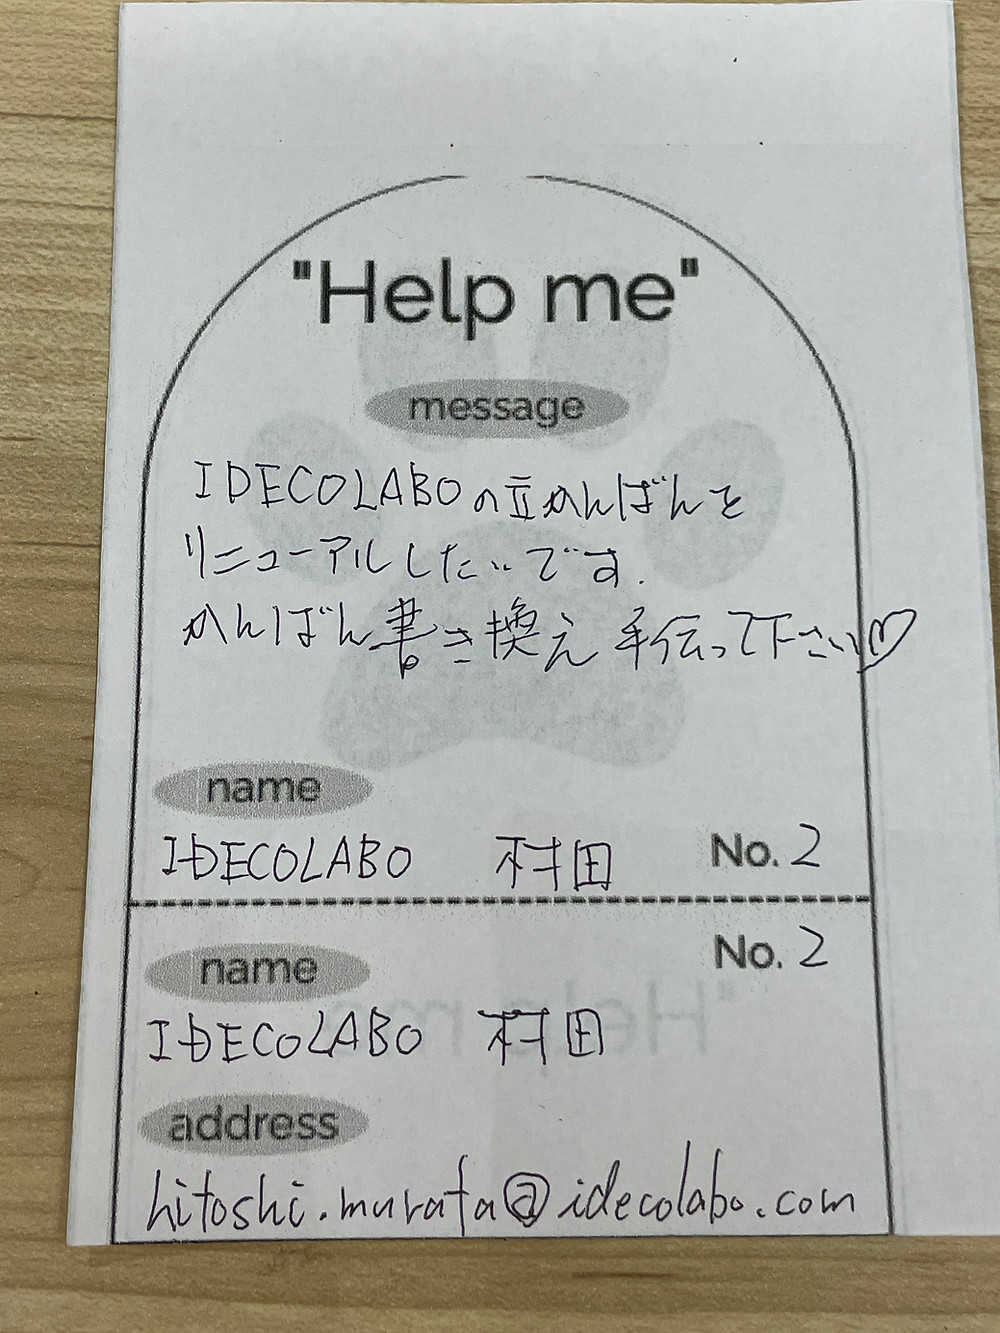 "Help me"
message
IDECOLABOの立かんばんを
リニューアルしたいです.
かんばん書き換え 手伝って下さい♡
name
IDECOLABO 村田 No. 2
No. 2
name
IDECOLABO 村田
address
hitoshi.murata@idecolabo.com